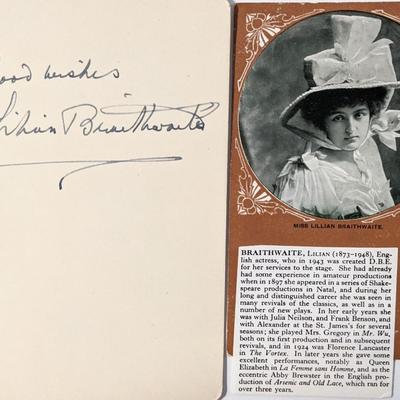 ood wishes
Lilian Braithwaite
MISS LILLIAN BRAITHWAITE.
BRAITHWAITE, LILIAN (1873–1948), Eng-
lish actress, who in 1943 was created D.B.E.
for her services to the stage. She had already
had some experience in amateur productions
when in 1897 she appeared in a series of Shake-
speare productions in Natal, and during her
long and distinguished career she was seen in
many revivals of the classics, as well as in a
number of new plays. In her early years she
was with Julia Neilson, and Frank Benson, and
with Alexander at the St. James's for several
seasons; she played Mrs. Gregory in Mr. Wu,
both on its first production and in subsequent
revivals, and in 1924 was Florence Lancaster
in The Vortex. In later years she gave some
excellent performances, notably as Queen
Elizabeth in La Femme sans Homme, and as the
eccentric Abby Brewster in the English pro-
duction of Arsenic and Old Lace, which ran for
over three years.